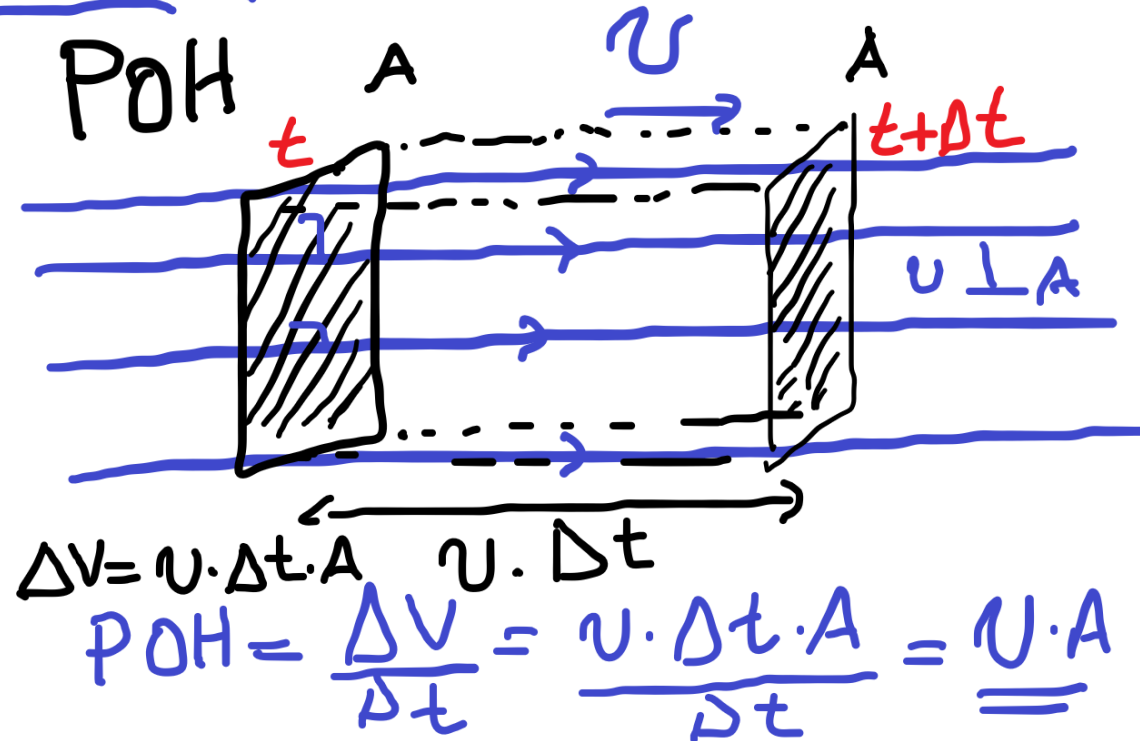 POH
A
υ
A
t
t+Δt
υ ⊥ A
ΔV= υ·Δt·A
υ·Δt
POH = ΔV/Δt = υ·Δt·A/Δt = υ·A